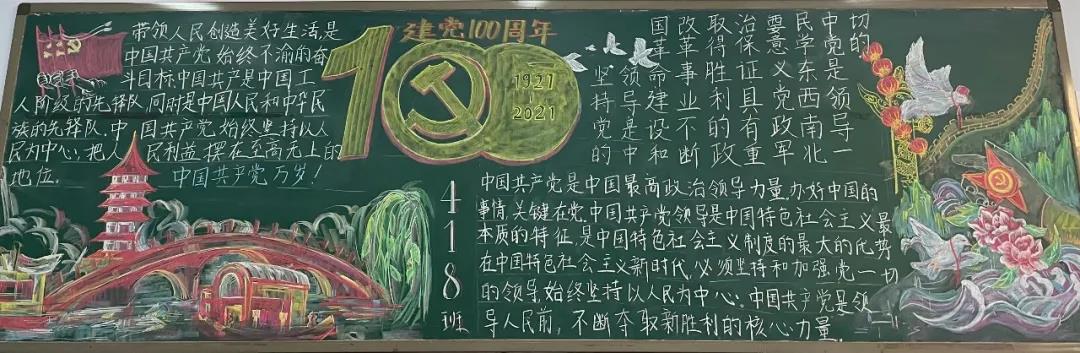 带领人民创造美好生活,是
中国共产党始终不渝的奋
斗目标,中国共产是中国工
人阶级的先锋队,同时是中国人民和中华民
族的先锋队,中国共产党始终坚持以人
民为中心,把人民利益摆在至高无上的
地位.
中国共产党万岁!
建党100周年
100
1921
2021
坚持党的
领导是中
国革命建设和
改革事业不断
取得胜利的政
治保证具有重
要意义党政军
民学东西南北
中党是领导一
切的
418班
中国共产党是中国最高政治领导力量,办好中国的
事情,关键在党.中国共产党领导是中国特色社会主义最
本质的特征,是中国特色社会主义制度的最大的优势
在中国特色社会主义新时代,必须坚持和加强党一切
的领导,始终坚持以人民为中心;中国共产党是领
导人民前,不断夺取新胜利的核心力量.